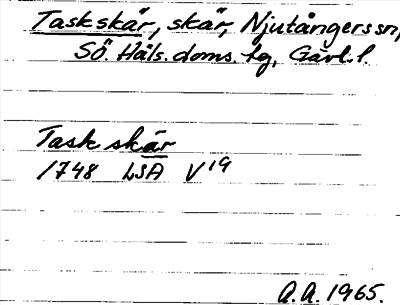 Taskskär, skär, Njutångers sn,
Sö. Häls. doms. tg, Gävl. l.
Taskskär
1748 LSA V19
A.A. 1965.